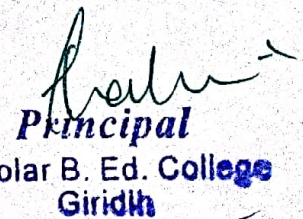 Principal
olar B. Ed. College
Giridih